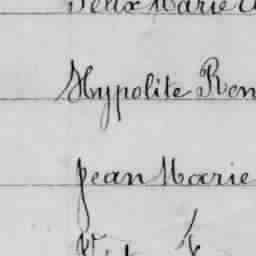 Felix Marie
Hypolite Ren
Jean Marie